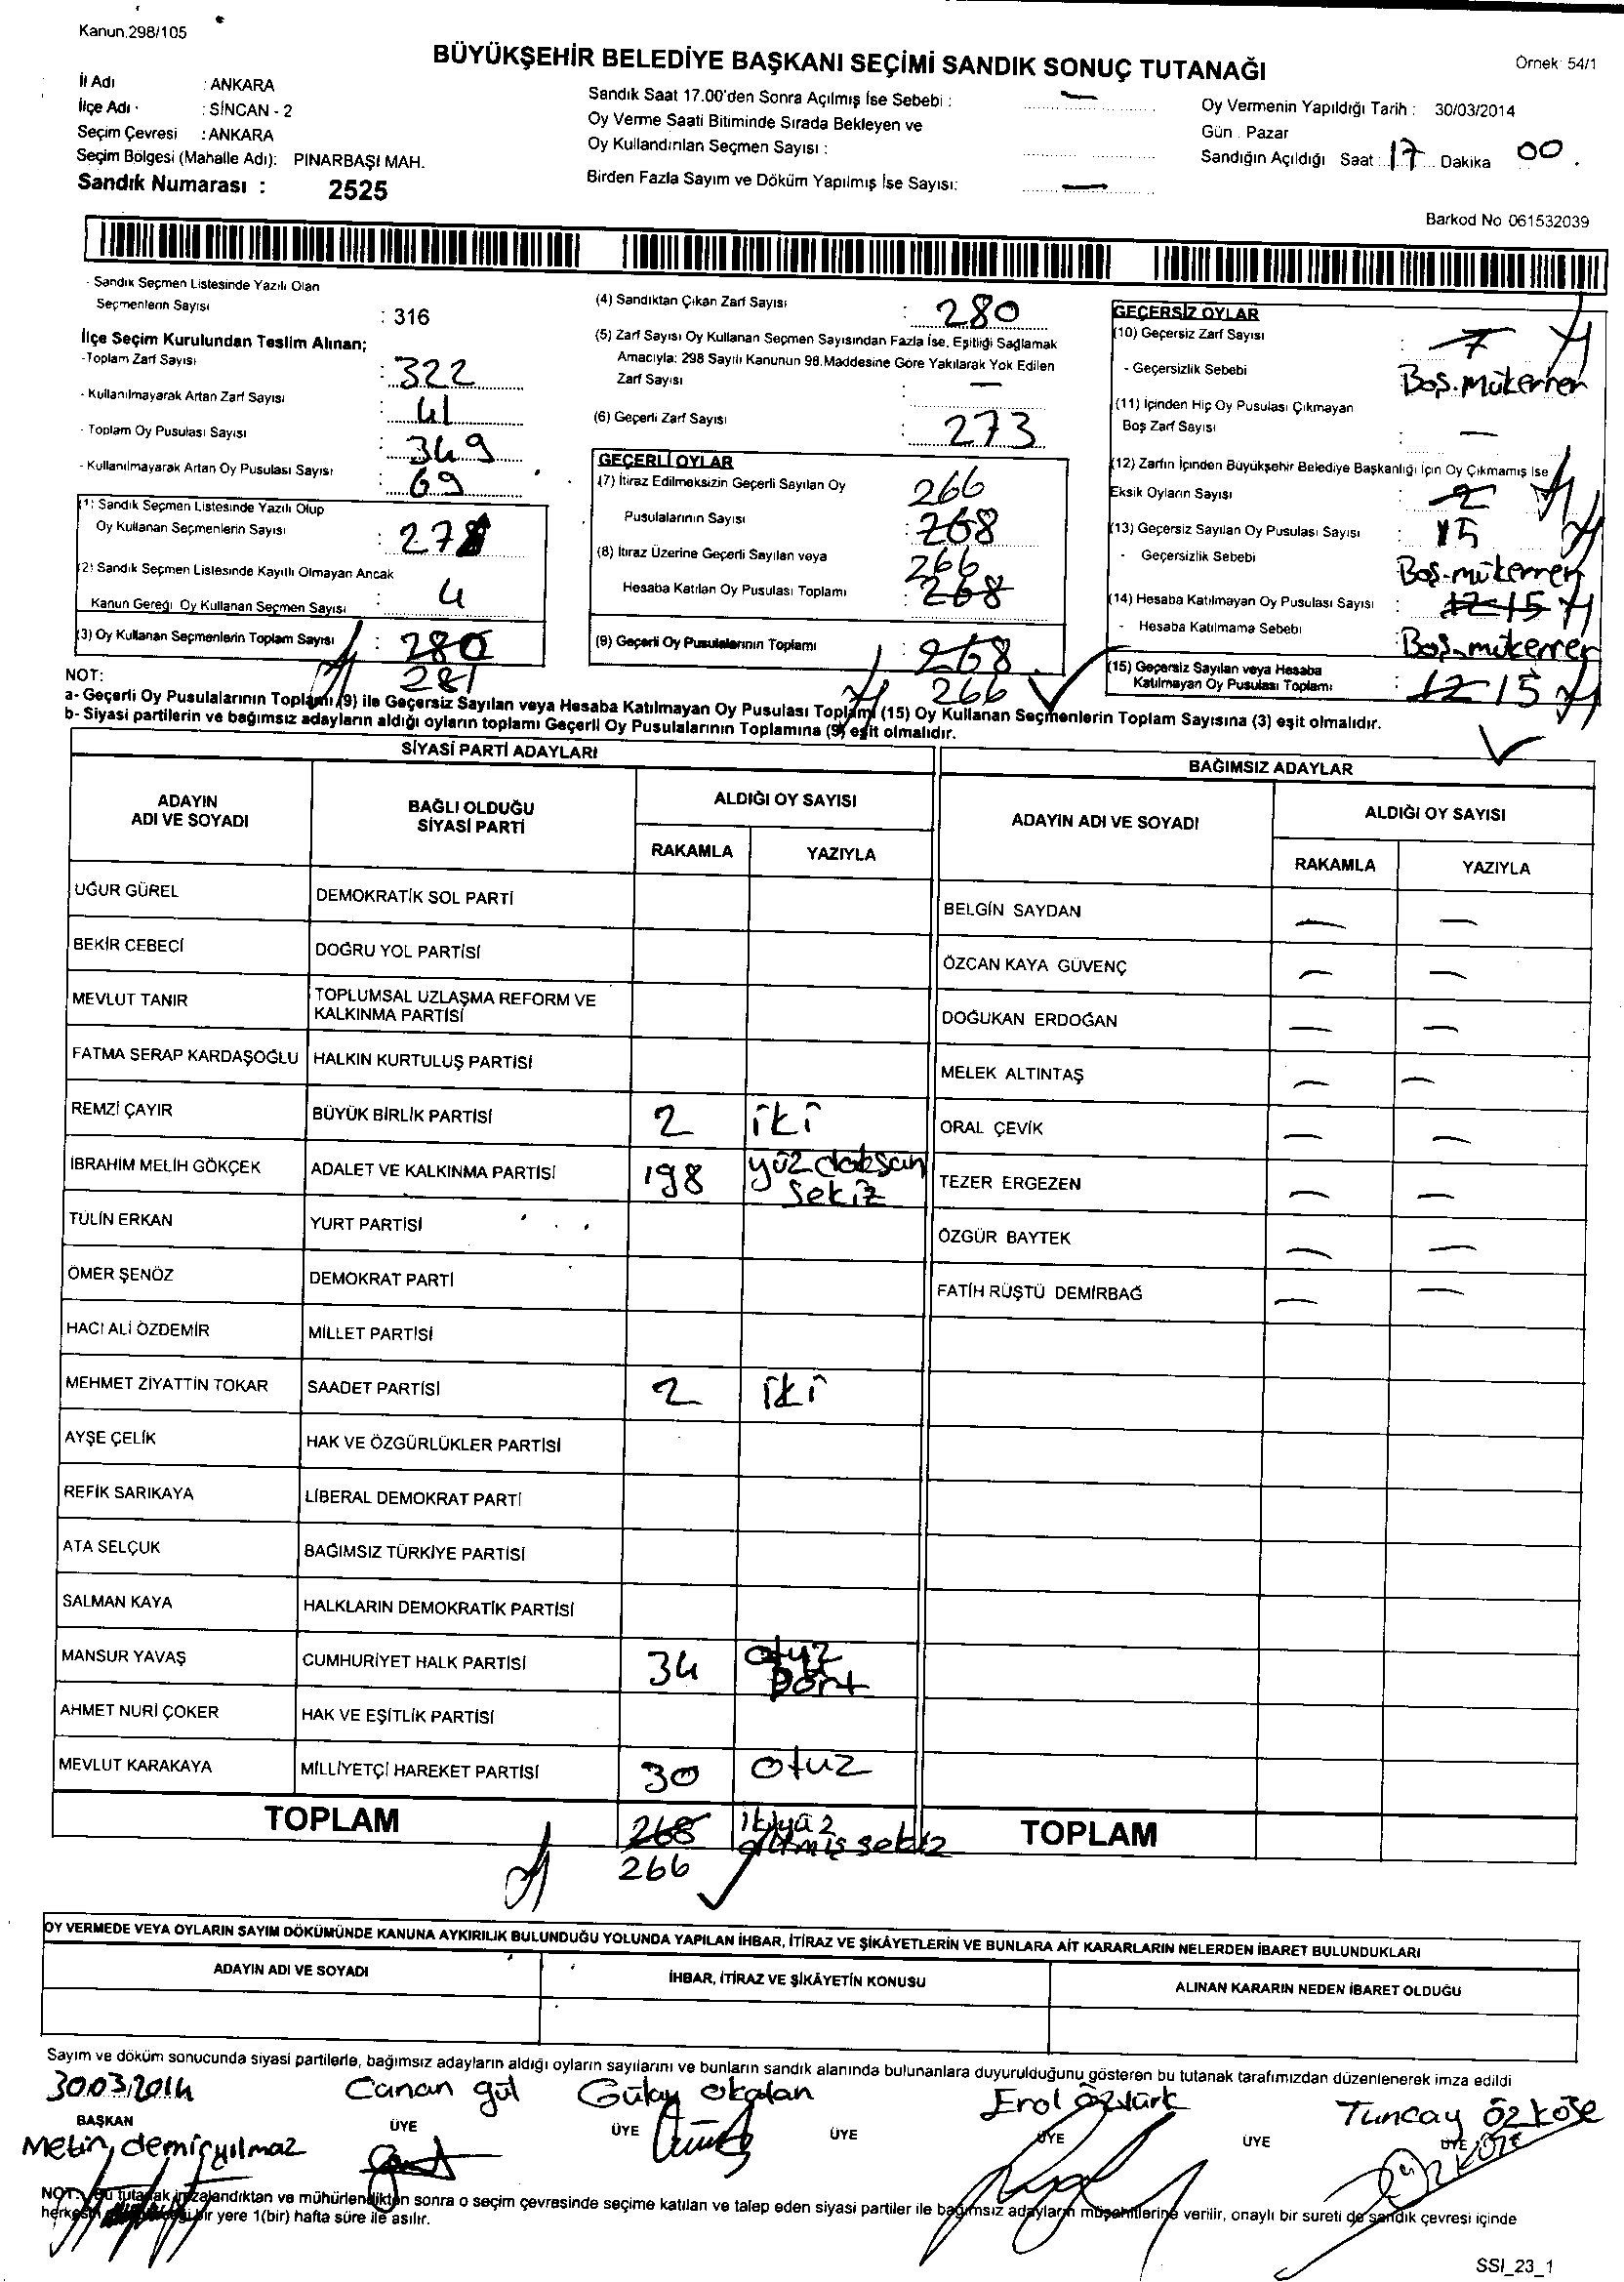 Kanun.298/105
BÜYÜKŞEHİR BELEDİYE BAŞKANI SEÇİMİ SANDIK SONUÇ TUTANAĞI
Örnek: 54/1
İl Adı : ANKARA
İlçe Adı : SİNCAN - 2
Seçim Çevresi : ANKARA
Seçim Bölgesi (Mahalle Adı): PINARBAŞI MAH.
Sandık Numarası : 2525
Sandık Saat 17.00'den Sonra Açılmış İse Sebebi : —
Oy Verme Saati Bitiminde Sırada Bekleyen ve
Oy Kullandırılan Seçmen Sayısı :
Birden Fazla Sayım ve Döküm Yapılmış İse Sayısı: —
Oy Vermenin Yapıldığı Tarih : 30/03/2014
Gün : Pazar
Sandığın Açıldığı Saat : 17 Dakika 00
Barkod No 061532039
- Sandık Seçmen Listesinde Yazılı Olan
Seçmenlerin Sayısı : 316
İlçe Seçim Kurulundan Teslim Alınan;
-Toplam Zarf Sayısı : 322
- Kullanılmayarak Artan Zarf Sayısı : 41
- Toplam Oy Pusulası Sayısı : 349
- Kullanılmayarak Artan Oy Pusulası Sayısı : 69
(1) Sandık Seçmen Listesinde Yazılı Olup
Oy Kullanan Seçmenlerin Sayısı :
(2) Sandık Seçmen Listesinde Kayıtlı Olmayan Ancak
Kanun Gereği Oy Kullanan Seçmen Sayısı : 4
(3) Oy Kullanan Seçmenlerin Toplam Sayısı : 280
281
(4) Sandıktan Çıkan Zarf Sayısı : 280
(5) Zarf Sayısı Oy Kullanan Seçmen Sayısından Fazla İse, Eşitliği Sağlamak
Amacıyla: 298 Sayılı Kanunun 98.Maddesine Göre Yakılarak Yok Edilen
Zarf Sayısı : —
(6) Geçerli Zarf Sayısı : 273
GEÇERLİ OYLAR
(7) İtiraz Edilmeksizin Geçerli Sayılan Oy 266
Pusulalarının Sayısı : 268
(8) İtiraz Üzerine Geçerli Sayılan veya 266
Hesaba Katılan Oy Pusulası Toplamı : 268
(9) Geçerli Oy Pusulalarının Toplamı : 268
266
GEÇERSİZ OYLAR
(10) Geçersiz Zarf Sayısı : 7
- Geçersizlik Sebebi : Boş.mükerrer
(11) İçinden Hiç Oy Pusulası Çıkmayan
Boş Zarf Sayısı : —
(12) Zarfın İçinden Büyükşehir Belediye Başkanlığı İçin Oy Çıkmamış İse
Eksik Oyların Sayısı : 2
(13) Geçersiz Sayılan Oy Pusulası Sayısı : 15
- Geçersizlik Sebebi Boş-mükerrer
(14) Hesaba Katılmayan Oy Pusulası Sayısı : 12 15
- Hesaba Katılmama Sebebi : Boş-mükerrer
(15) Geçersiz Sayılan veya Hesaba
Katılmayan Oy Pusulası Toplamı : 12 15
NOT:
a- Geçerli Oy Pusulalarının Toplamı (9) ile Geçersiz Sayılan veya Hesaba Katılmayan Oy Pusulası Toplamı (15) Oy Kullanan Seçmenlerin Toplam Sayısına (3) eşit olmalıdır.
b- Siyasi partilerin ve bağımsız adayların aldığı oyların toplamı Geçerli Oy Pusulalarının Toplamına (9) eşit olmalıdır.
SİYASİ PARTİ ADAYLARI
ADAYIN ADI VE SOYADI
BAĞLI OLDUĞU SİYASİ PARTİ
ALDIĞI OY SAYISI
RAKAMLA YAZIYLA
UĞUR GÜREL DEMOKRATİK SOL PARTİ
BEKİR CEBECİ DOĞRU YOL PARTİSİ
MEVLUT TANIR TOPLUMSAL UZLAŞMA REFORM VE KALKINMA PARTİSİ
FATMA SERAP KARDAŞOĞLU HALKIN KURTULUŞ PARTİSİ
REMZİ ÇAYIR BÜYÜK BİRLİK PARTİSİ 2 iki
İBRAHİM MELİH GÖKÇEK ADALET VE KALKINMA PARTİSİ 198 yüz doksan sekiz
TÜLİN ERKAN YURT PARTİSİ
ÖMER ŞENÖZ DEMOKRAT PARTİ
HACI ALİ ÖZDEMİR MİLLET PARTİSİ
MEHMET ZİYATTİN TOKAR SAADET PARTİSİ 2 iki
AYŞE ÇELİK HAK VE ÖZGÜRLÜKLER PARTİSİ
REFİK SARIKAYA LİBERAL DEMOKRAT PARTİ
ATA SELÇUK BAĞIMSIZ TÜRKİYE PARTİSİ
SALMAN KAYA HALKLARIN DEMOKRATİK PARTİSİ
MANSUR YAVAŞ CUMHURİYET HALK PARTİSİ 34 otuz Dört
AHMET NURİ ÇOKER HAK VE EŞİTLİK PARTİSİ
MEVLUT KARAKAYA MİLLİYETÇİ HAREKET PARTİSİ 30 otuz
TOPLAM 268 ikiyüz altmış sekiz
266
BAĞIMSIZ ADAYLAR
ADAYIN ADI VE SOYADI
ALDIĞI OY SAYISI
RAKAMLA YAZIYLA
BELGİN SAYDAN — —
ÖZCAN KAYA GÜVENÇ — —
DOĞUKAN ERDOĞAN — —
MELEK ALTINTAŞ — —
ORAL ÇEVİK — —
TEZER ERGEZEN — —
ÖZGÜR BAYTEK — —
FATİH RÜŞTÜ DEMİRBAĞ — —
TOPLAM
OY VERMEDE VEYA OYLARIN SAYIM DÖKÜMÜNDE KANUNA AYKIRILIK BULUNDUĞU YOLUNDA YAPILAN İHBAR, İTİRAZ VE ŞİKÂYETLERİN VE BUNLARA AİT KARARLARIN NELERDEN İBARET BULUNDUKLARI
ADAYIN ADI VE SOYADI
İHBAR, İTİRAZ VE ŞİKÂYETİN KONUSU
ALINAN KARARIN NEDEN İBARET OLDUĞU
Sayım ve döküm sonucunda siyasi partilerle, bağımsız adayların aldığı oyların sayılarını ve bunların sandık alanında bulunanlara duyurulduğunu gösteren bu tutanak tarafımızdan düzenlenerek imza edildi
30.03.2014 Canan gül Gülay okalan Erol Öztürk Tuncay Özköse
BAŞKAN ÜYE ÜYE ÜYE ÜYE ÜYE ÜYE
Metin demiryılmaz
NOT: Bu tutanak imzalandıktan ve mühürlendikten sonra o seçim çevresinde seçime katılan ve talep eden siyasi partiler ile bağımsız adayların müşahitlerine verilir, onaylı bir sureti de sandık çevresi içinde
bir yere 1(bir) hafta süre ile asılır.
SSI_23_1